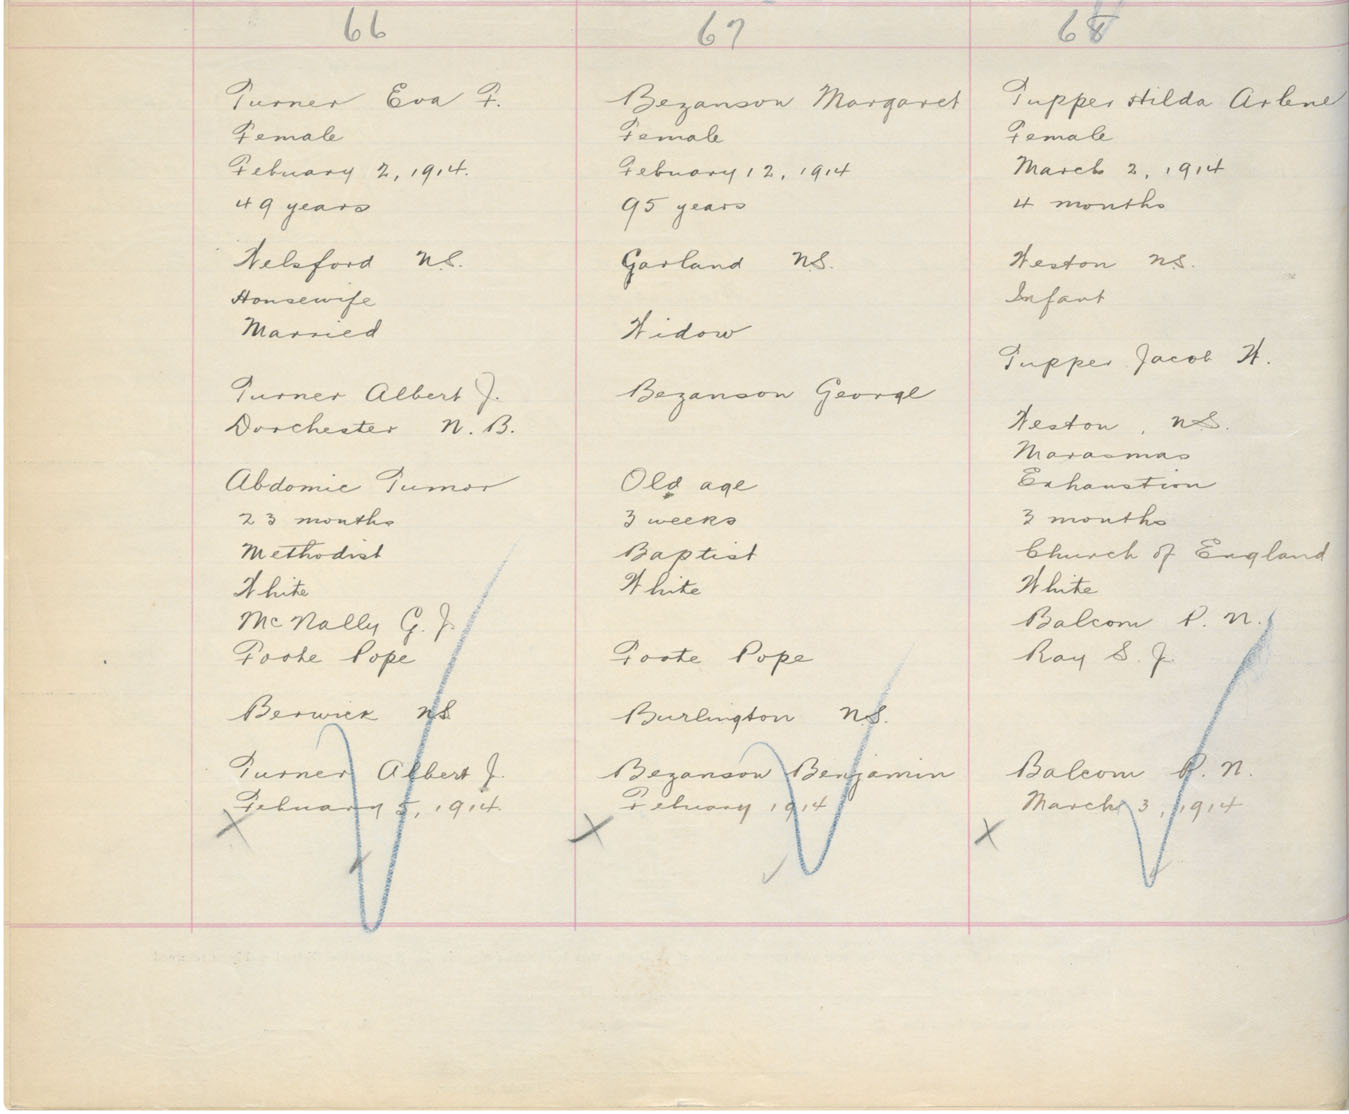 66
Turner Eva F.
Female
Febuary 2, 1914.
49 years
Welsford N.S.
Housewife
Married
Turner Albert J.
Dorchester N.B.
Abdomic Tumor
23 months
Methodist
White
McNally G. J.
Foote Pope
Berwick N.S.
Turner Albert J.
Febuary 5, 1914.
67
Bezanson Margaret
Female
Febuary 12, 1914
95 years
Garland N.S.
Widow
Bezanson George
Old age
3 weeks
Baptist
White
Foote Pope
Burlington N.S.
Bezanson Benjamin
Febuary 1914
68
Tupper Hilda Arlene
Female
March 2, 1914
4 months
Weston N.S.
Infant
Tupper Jacob W.
Weston, N.S.
Marasmas
Exhaustion
3 months
Church of England
White
Balcom P. N.
Ray S. J.
Balcom P. N.
March 3, 1914